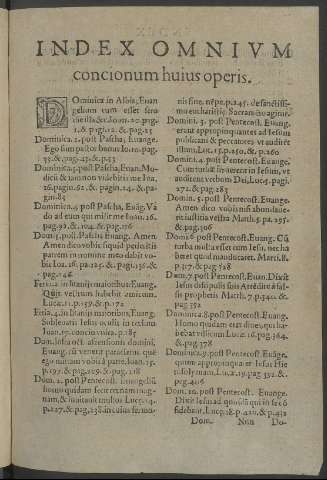 INDEX OMNIVM
concionum huius operis.
DOminica in Albis, Euan
gelium cum esset sero
die illa &c. Ioan. 20. pag.
1. & pagi. 12. & pag. 25
Dominica. 2. post Pascha, Euange.
Ego sum pastor bonus Io. 10. pag.
33. & pag. 43. & p. 53
Dominica. 3. post Pascha, Euan. Mo-
dicū & iam non videbitis me Ioa.
16. pagin. 62. & pagin. 74. & pa-
gin. 83
Dominica. 4 post Pascha, Euāg. Va
do ad eum qui misit me Ioan. 16.
pag. 92. &. 104. & pag. 116
Dom. 5. post Pascha Euang. Amen
Amen dico vobis si quid petieritis
patrem in nomine meo dabit vo-
bis Ioa. 16. pa. 125. &. pagi. 136. &
pag. 146
Feria. 2. in litanijs maioribus, Euang.
Quis vestrum habebit amicum.
Lucæ. 11. p. 159. & p. 172
Feria. 4. in litanijs maioribus, Euang.
Subleuatis Iesus oculis in cœlum
Ioan. 17. concio vnica. p. 185
Dom. infra oct. ascensionis domini,
Euang. cū venerit paracletus quē
ego mittam vobis à patre, Ioan. 15.
p. 197. & pag. 219. & pag. 218
Dom. 2. post Pentecost. Euang. hō
homo quidam fecit cœnam mag-
nam, & inuitauit multos Luc. 14.
p. 227. & pag. 238. in cuius sermo-
nis fine. nēpe. p. 245. de sanctissi-
mo eucharistiæ Sacramēto agitur.
Domi. 3. post Pentecost. Euang.
erant appropinquantes ad Iesum
publicani & peccatores vt audirēt
illum. Luc. 15. p. 250. &. p. 260
Domi. 4. post Pentecost. Euange.
Cum turbæ irruerent in Iesum, vt
audirent verbum Dei, Luc. 5. pagi.
272. & pag. 283
Domin. 5. post Pentecost. Euang.
Amen dico vobis nisi abundaue-
rit iustitia vestra Matth. 5. pa. 295.
& pag. 306
Domi. 6 post Pentecost. Euang. Cū
turba multa esset cum Iesu, nec ha
beret quod manducaret. Marci. 8.
p. 317. & pag. 328
Dom. 7. post Pentecost. Euan. Dixit
Iesus discipulis suis Attēdite à fal-
sis prophetis Matth. 7. p. 340. &.
pag. 352
Dominica. 8. post Pentecost. Euang.
Homo quidam erat diues, qui ha-
bebat villicum Lucæ. 16. pag. 364.
& pag. 378
Dominica. 9. post Pentecost. Euāge.
quum appropinquaret Iesus Hie
rosolymam, Luc. 19. pag. 392. &.
pag. 406
Dom. 10. post Pentecost. Euange.
Dixit Iesus ad quosdā qui in se cō
fidebant, Luc. 18. p. 420. & p. 432
Dom. Nnn Do-